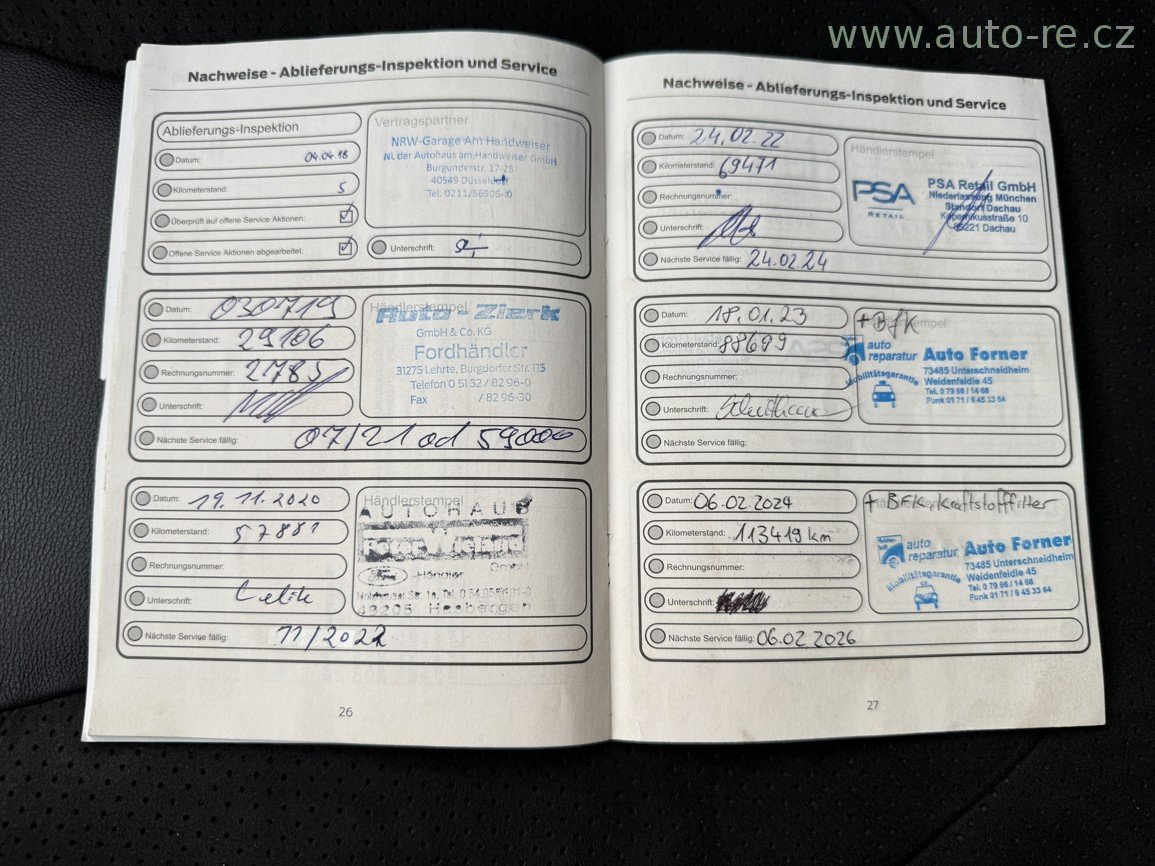 www.auto-re.cz
Nachweise - Ablieferungs-Inspektion und Service
Ablieferungs-Inspektion
Datum: 04.04.18
Kilometerstand: 5
Überprüft auf offene Service Aktionen:
Offene Service Aktionen abgearbeitet:
Vertragspartner
NRW-Garage Am Handweiser
NL der Autohaus am Handweiser GmbH
Burgunderstr. 17-25
40549 Düsseldorf
Tel. 0211/56906-0
Unterschrift:
Datum: 030719
Kilometerstand: 29106
Rechnungsnummer: 2785
Unterschrift:
Nächste Service fällig: 07/21 od 59000
Händlerstempel
Auto-Zierk
GmbH & Co. KG
Fordhändler
31275 Lehrte, Burgdorfer Str. 115
Telefon 0 51 32 / 82 96-0
Fax / 82 96-30
Datum: 19.11.2020
Kilometerstand:
Rechnungsnummer:
Unterschrift: Celik
Nächste Service fällig: 11/2022
Händlerstempel
AUTOHAUS
GmbH
-Händler
49205 Hasbergen
26
Nachweise - Ablieferungs-Inspektion und Service
Datum: 24.02.22
Kilometerstand: 69471
Rechnungsnummer:
Unterschrift:
Nächste Service fällig: 24.02.24
Händlerstempel
PSA
RETAIL
PSA Retail GmbH
Niederlassung München
Standort Dachau
Kopernikusstraße 10
85221 Dachau
Datum: 18.01.23
Kilometerstand: 88699
Rechnungsnummer:
Unterschrift:
Nächste Service fällig:
Händlerstempel
+ BFK
auto
reparatur
Mobilitätsgarantie
Auto Forner
73485 Unterschneidheim
Weidenfeldle 45
Tel. 0 79 66 / 14 68
Funk 01 71 / 6 45 33 64
Datum: 06.02.2024
Kilometerstand: 113419 km
Rechnungsnummer:
Unterschrift:
Nächste Service fällig: 06.02.2026
+ BFK + Kraftstofffilter
auto
reparatur
Mobilitätsgarantie
Auto Forner
73485 Unterschneidheim
Weidenfeldle 45
Tel. 0 79 66 / 14 68
Funk 01 71 / 6 45 33 64
27